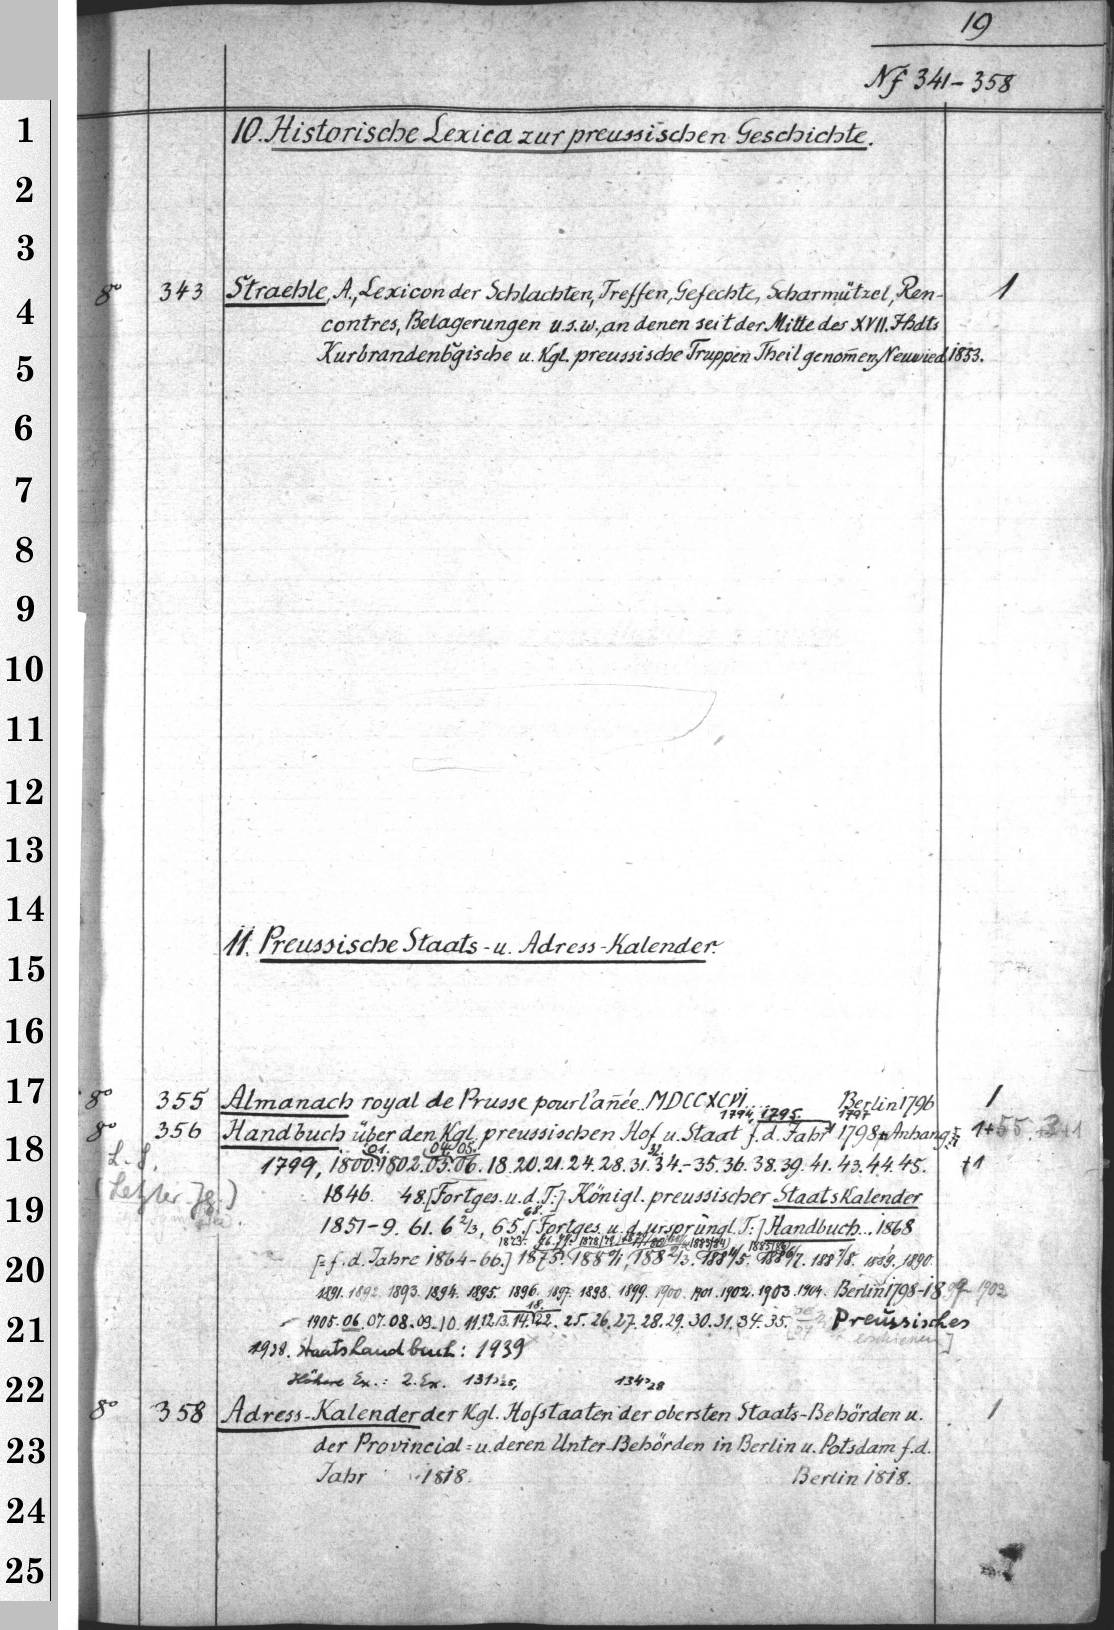 19
Nf 341-358
10. Historische Lexica zur preussischen Geschichte.
8° 343 Straehle, A., Lexicon der Schlachten, Treffen, Gefechte, Scharmützel, Ren- 1
contres, Belagerungen u.s.w., an denen seit der Mitte des XVII. Jhdts
Kurbrandenbgische u. Kgl. preussische Truppen Theil genom̄en, Neuwied 1853.
11. Preussische Staats- u. Adress-Kalender.
8° 355 Almanach royal de Prusse pour l'an̄ée.. MDCCXCVI.... Berlin 1796 1
1794, 1795. 1797
8° 356 Handbuch über den Kgl. preussischen Hof u. Staat f. d. Jahr 1798 + Anhang 1+55
01. 04. 05. 32
1799, 1800. 1802. 03. 06. 18. 20. 21. 24. 28. 31. 34.-35. 36. 38. 39. 41. 43. 44. 45. +1
L. S.
(Letzter Jg.)
1846. 48 [Fortges. u. d. T:] Königl. preussischer Staats Kalender
68.
1851-9. 61. 6 2/3, 65. [Fortges. u. d. ursprüngl. T:] Handbuch... 1868
[= f. d. Jahre 1864-66.] 1875. 1880/1, 1882/3. 1884/5. 1886/7. 1887/8. 1889. 1890.
1891. 1892. 1893. 1894. 1895. 1896. 1897. 1898. 1899. 1900. 1901. 1902. 1903. 1904. Berlin 1798-18 1903
18.
1905. 06. 07. 08. 09. 10. 11. 12. 13. 14. 22. 25. 26. 27. 28. 29. 30. 31. 34. 35. Preussisches
erschienen]
1938. Staatshandbuch: 1939
Höhere Ex.: 2. Ex. 131>25, 134>28
8° 358 Adress-Kalender der Kgl. Hofstaaten der obersten Staats-Behörden u. 1
der Provincial= u. deren Unter-Behörden in Berlin u. Potsdam f. d.
Jahr 1818. Berlin 1818.
1
2
3
4
5
6
7
8
9
10
11
12
13
14
15
16
17
18
19
20
21
22
23
24
25